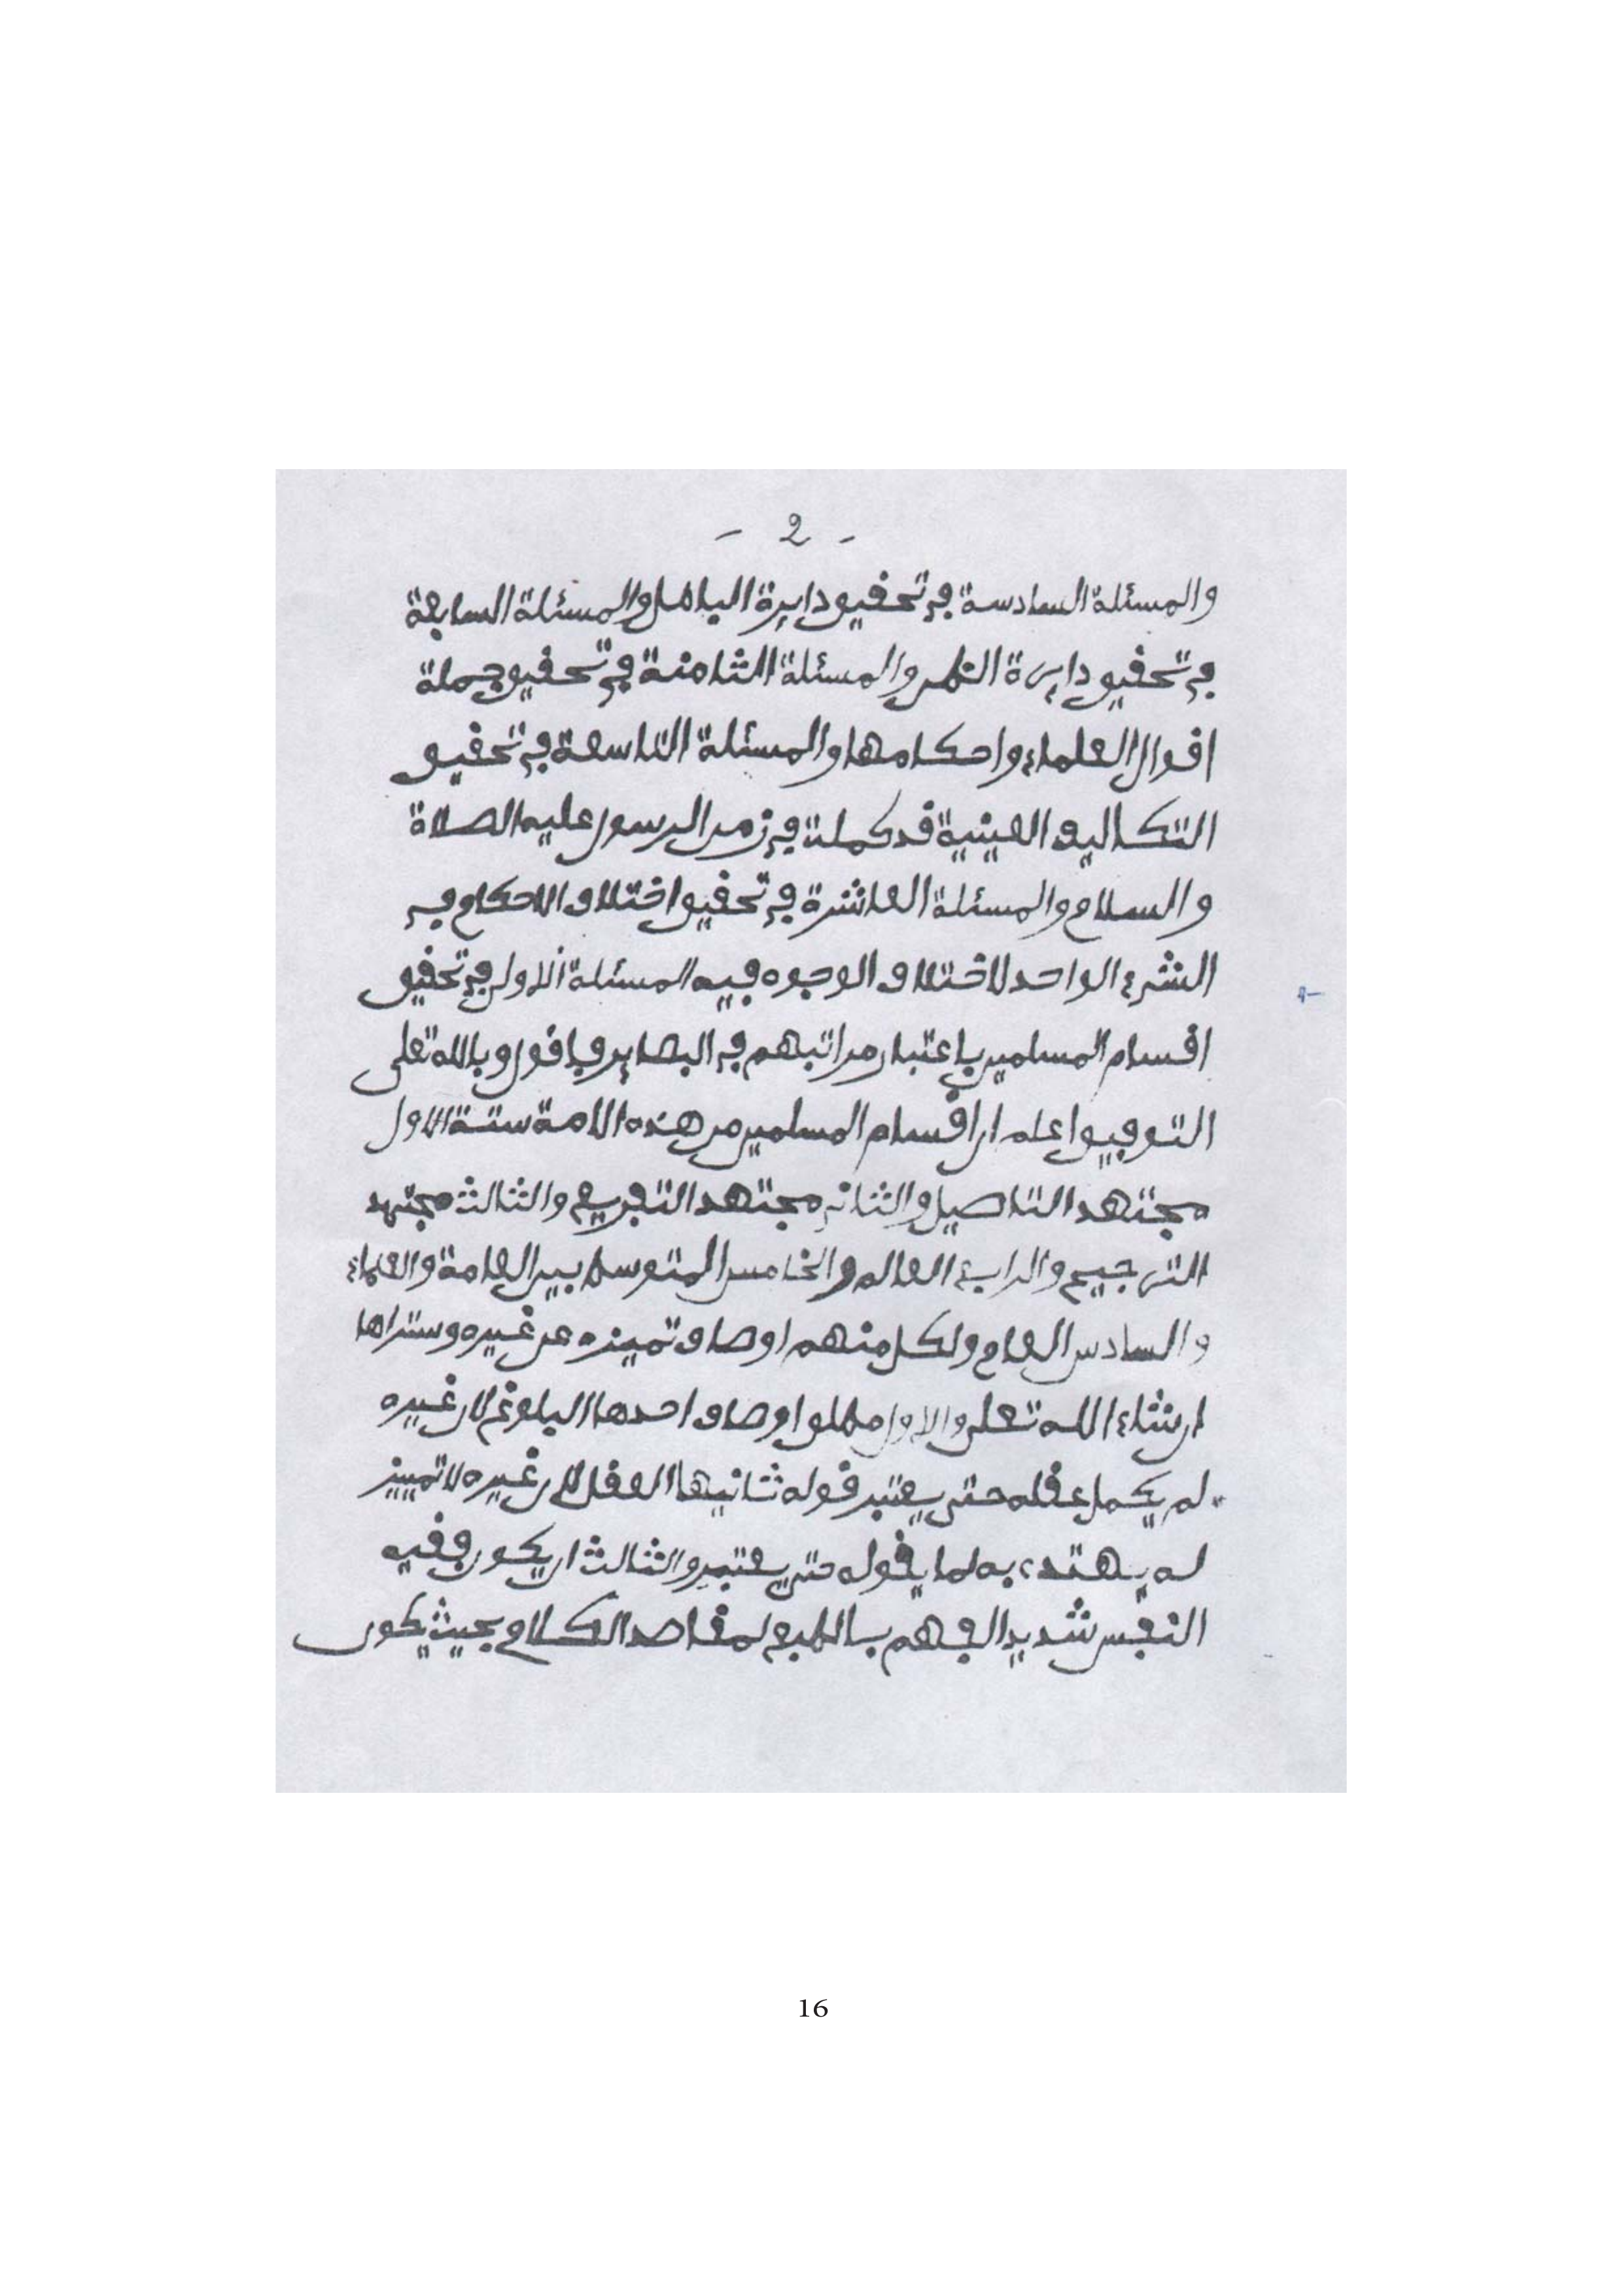 - 2 -
والمسئلة السادسة في تحقيق دايرة الباطل والمسئلة السابعة
في تحقيق دايرة النظر والمسئلة الثامنة في تحقيق جملة
اقوال العلماء واحكامها والمسئلة التاسعة في تحقيق
التكاليف العينية قد كملت في زمن الرسول عليه الصلاة
والسلام والمسئلة العاشرة في تحقيق اختلاف الاحكام في
الشيء الواحد لاختلاف الوجوه فيه المسئلة الاولى في تحقيق
اقسام المسلمين باعتبار مراتبهم في البصاير فاقول وبالله تعلى
التوفيق اعلم ان اقسام المسلمين من هذه الامة ستة الاول
مجتهد التاصيل والثاني مجتهد التفريع والثالث مجتهد
الترجيح والرابع العالم والخامس المتوسط بين العامة والعلماء
والسادس العام ولكل منهم اوصاف تميزه عن غيره وستراها
ان شاء الله تعلى والاول مطلق اوصاف احدها البلوغ لان غيره
لم يكمل عقله حتى يعتبر قوله ثانيها العقل لان غيره لا تمييز
له يهتدي به لما يقوله حتى يعتبر والثالث ان يكون فقيه
النفس شديد الفهم بالطبع لمقاصد الكلام بحيث يكون
16